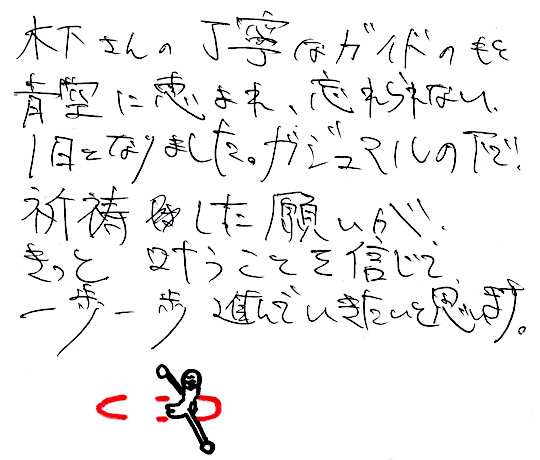 木下さんの丁寧なガイドのもと
青空に恵まれ、忘れられない
1日となりました。ガジュマルの下で
祈祷した願いが
きっと叶うことを信じて
一歩一歩進んでいきたいと思います。